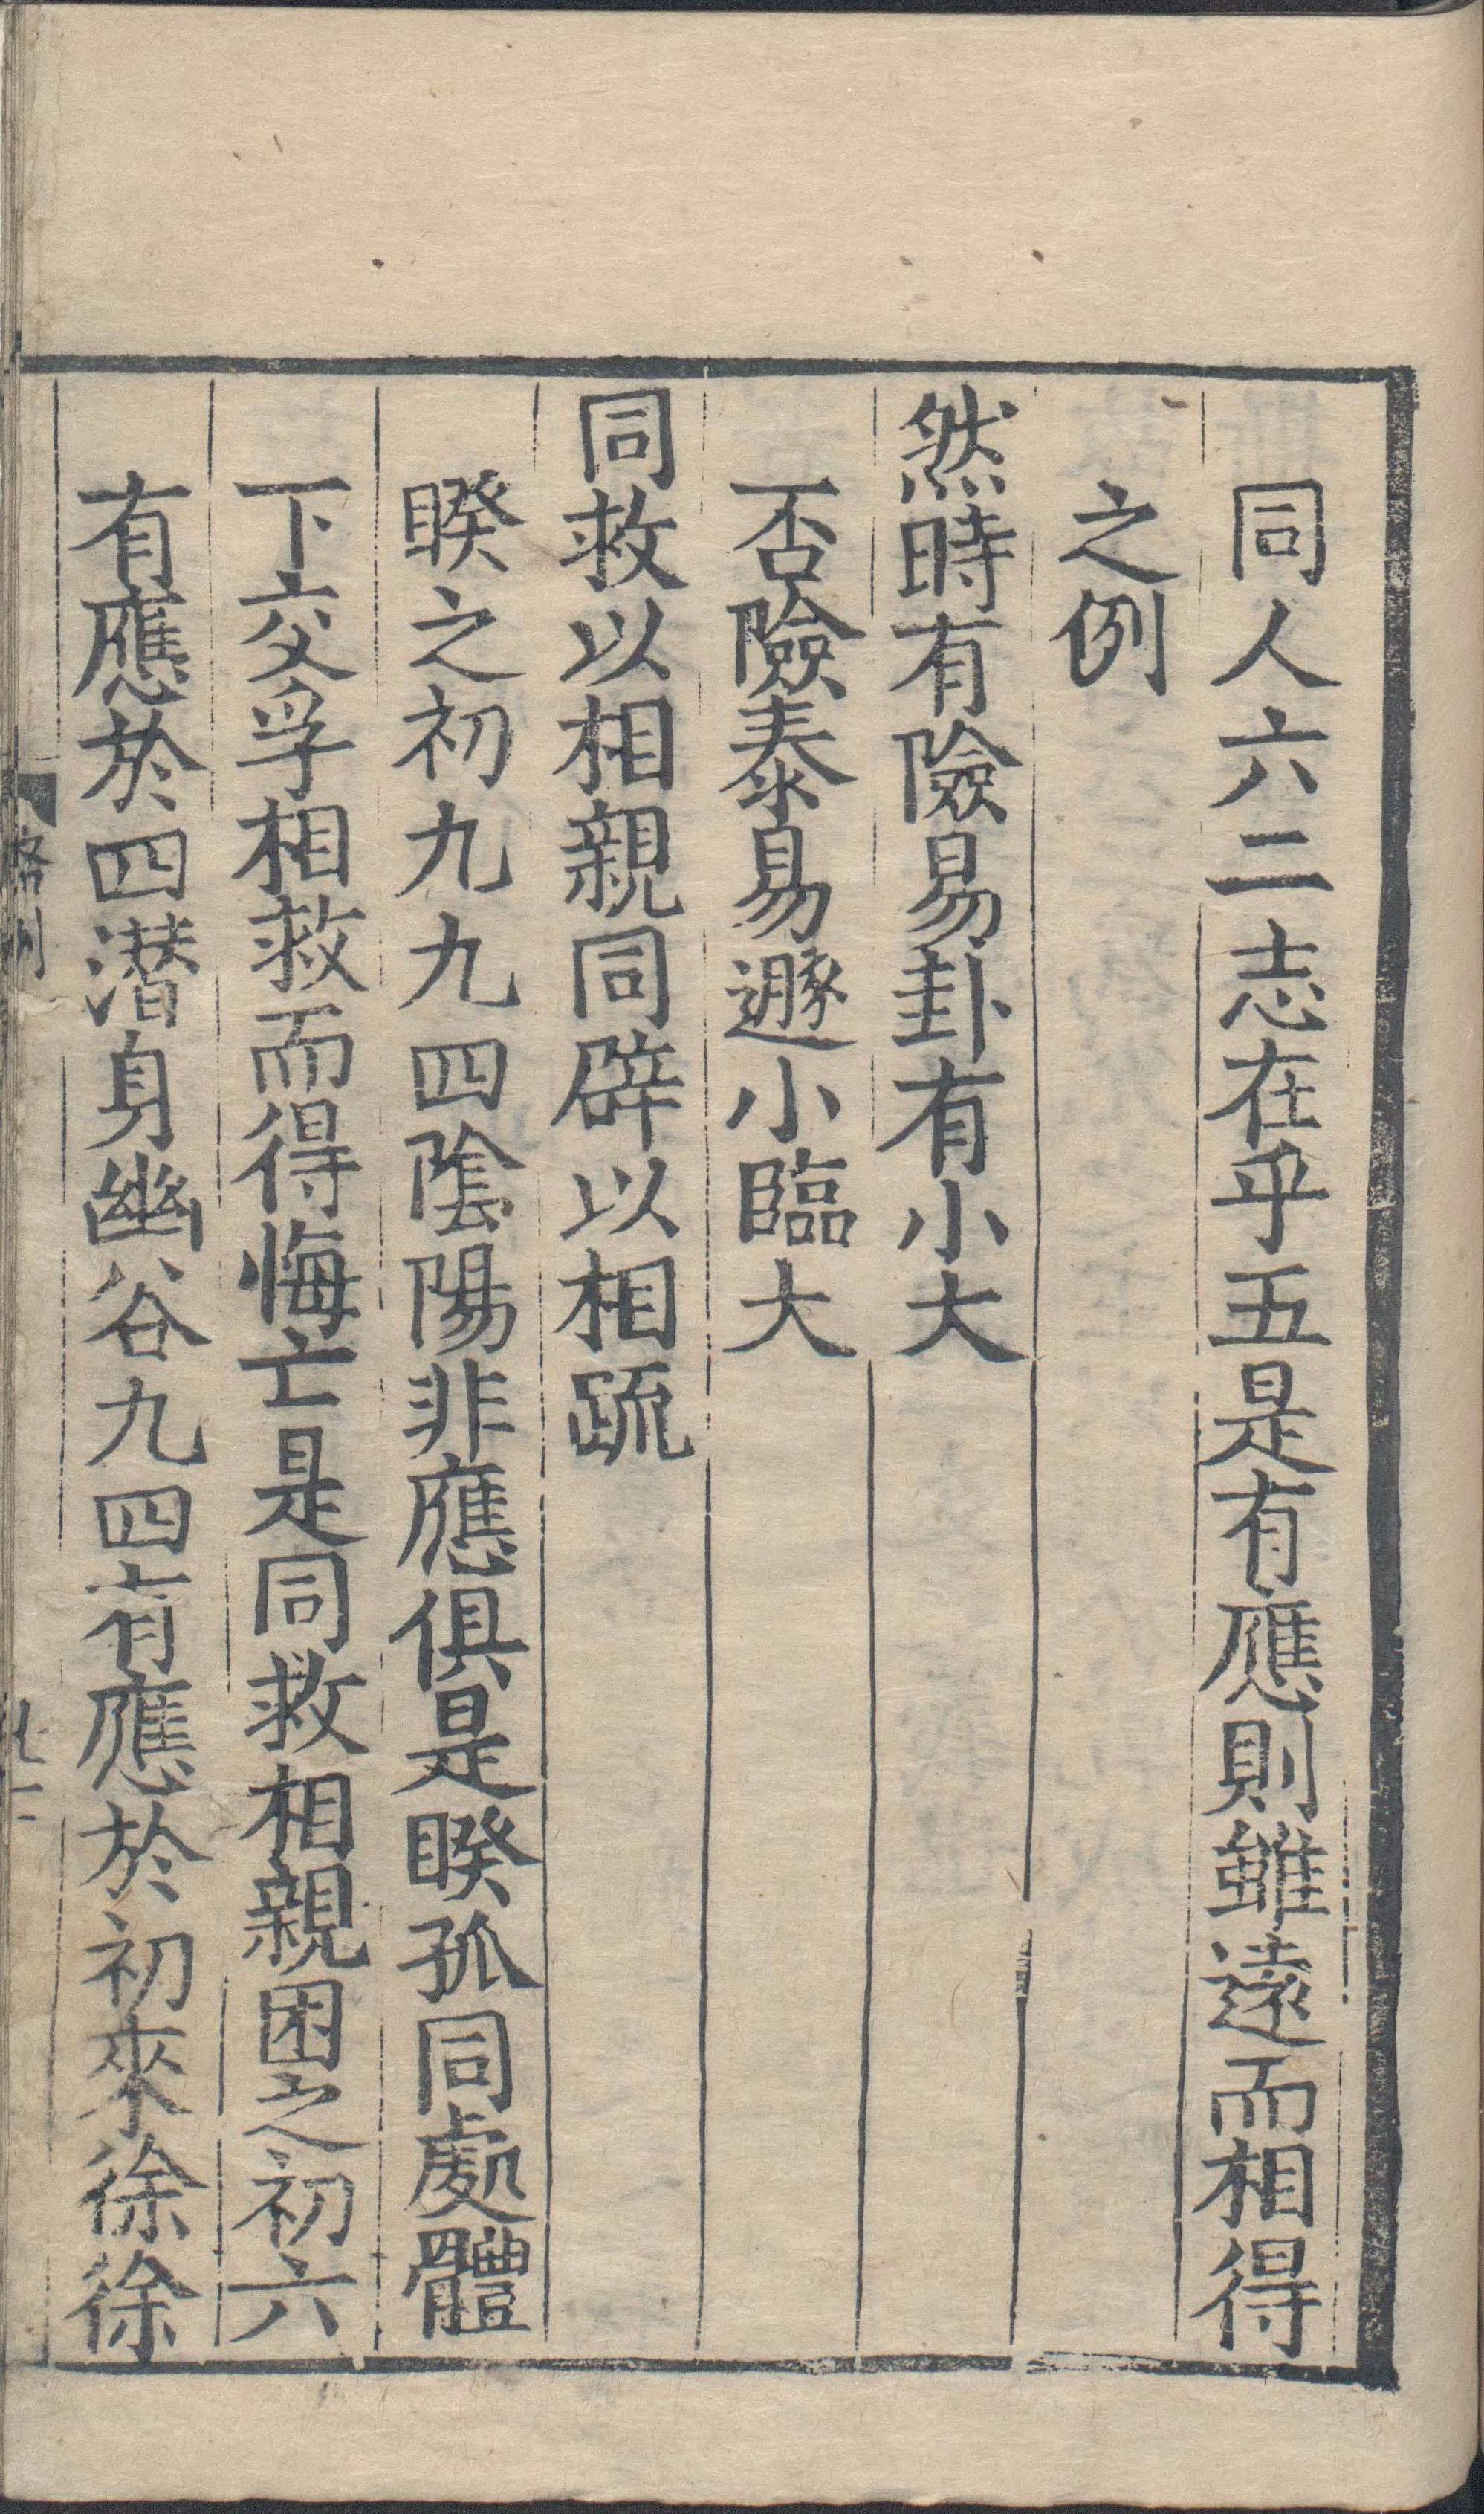 同人六二志在乎五是有應則雖遠而相得
之例
然時有險易卦有小大
否險泰易遯小臨大
同救以相親同辟以相䟽
睽之初九九四隂陽非應俱是睽孤同處體
下交孚相救而得悔亡是同救相親困之初六
有應於四潛身幽谷九四有應於初來徐徐
略例